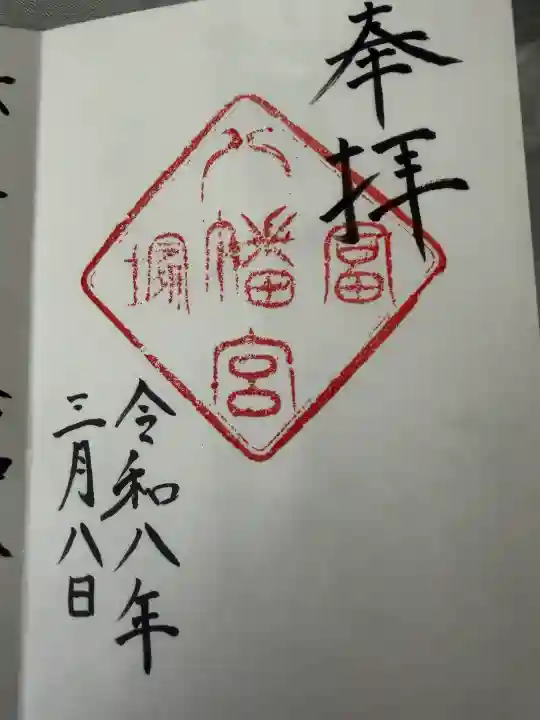 奉拝
富
八幡宮
塚
令和八年
三月八日